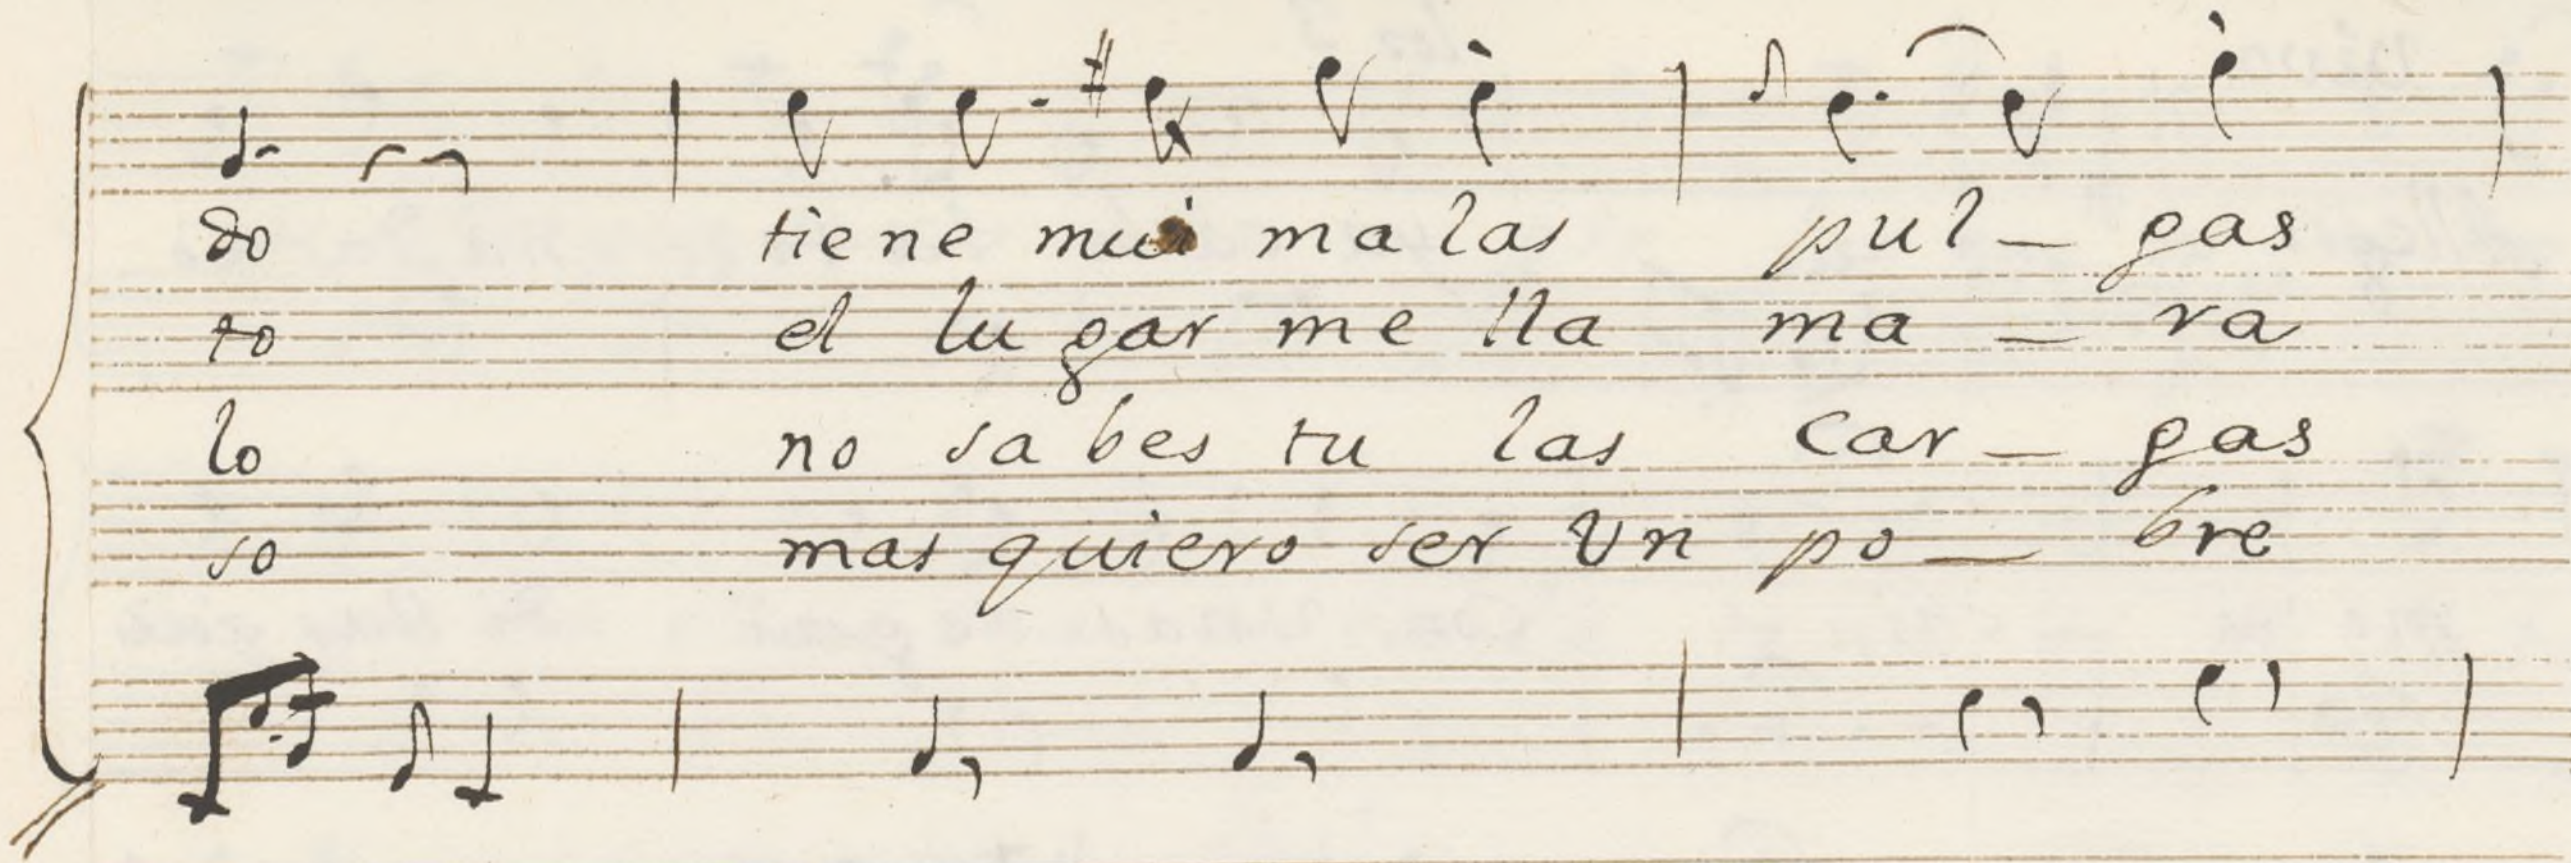 do tiene mui malas pul_gas
to el lugar me lla ma_ra
lo no sabes tu las car_gas
so mas quiero ser Un po_bre